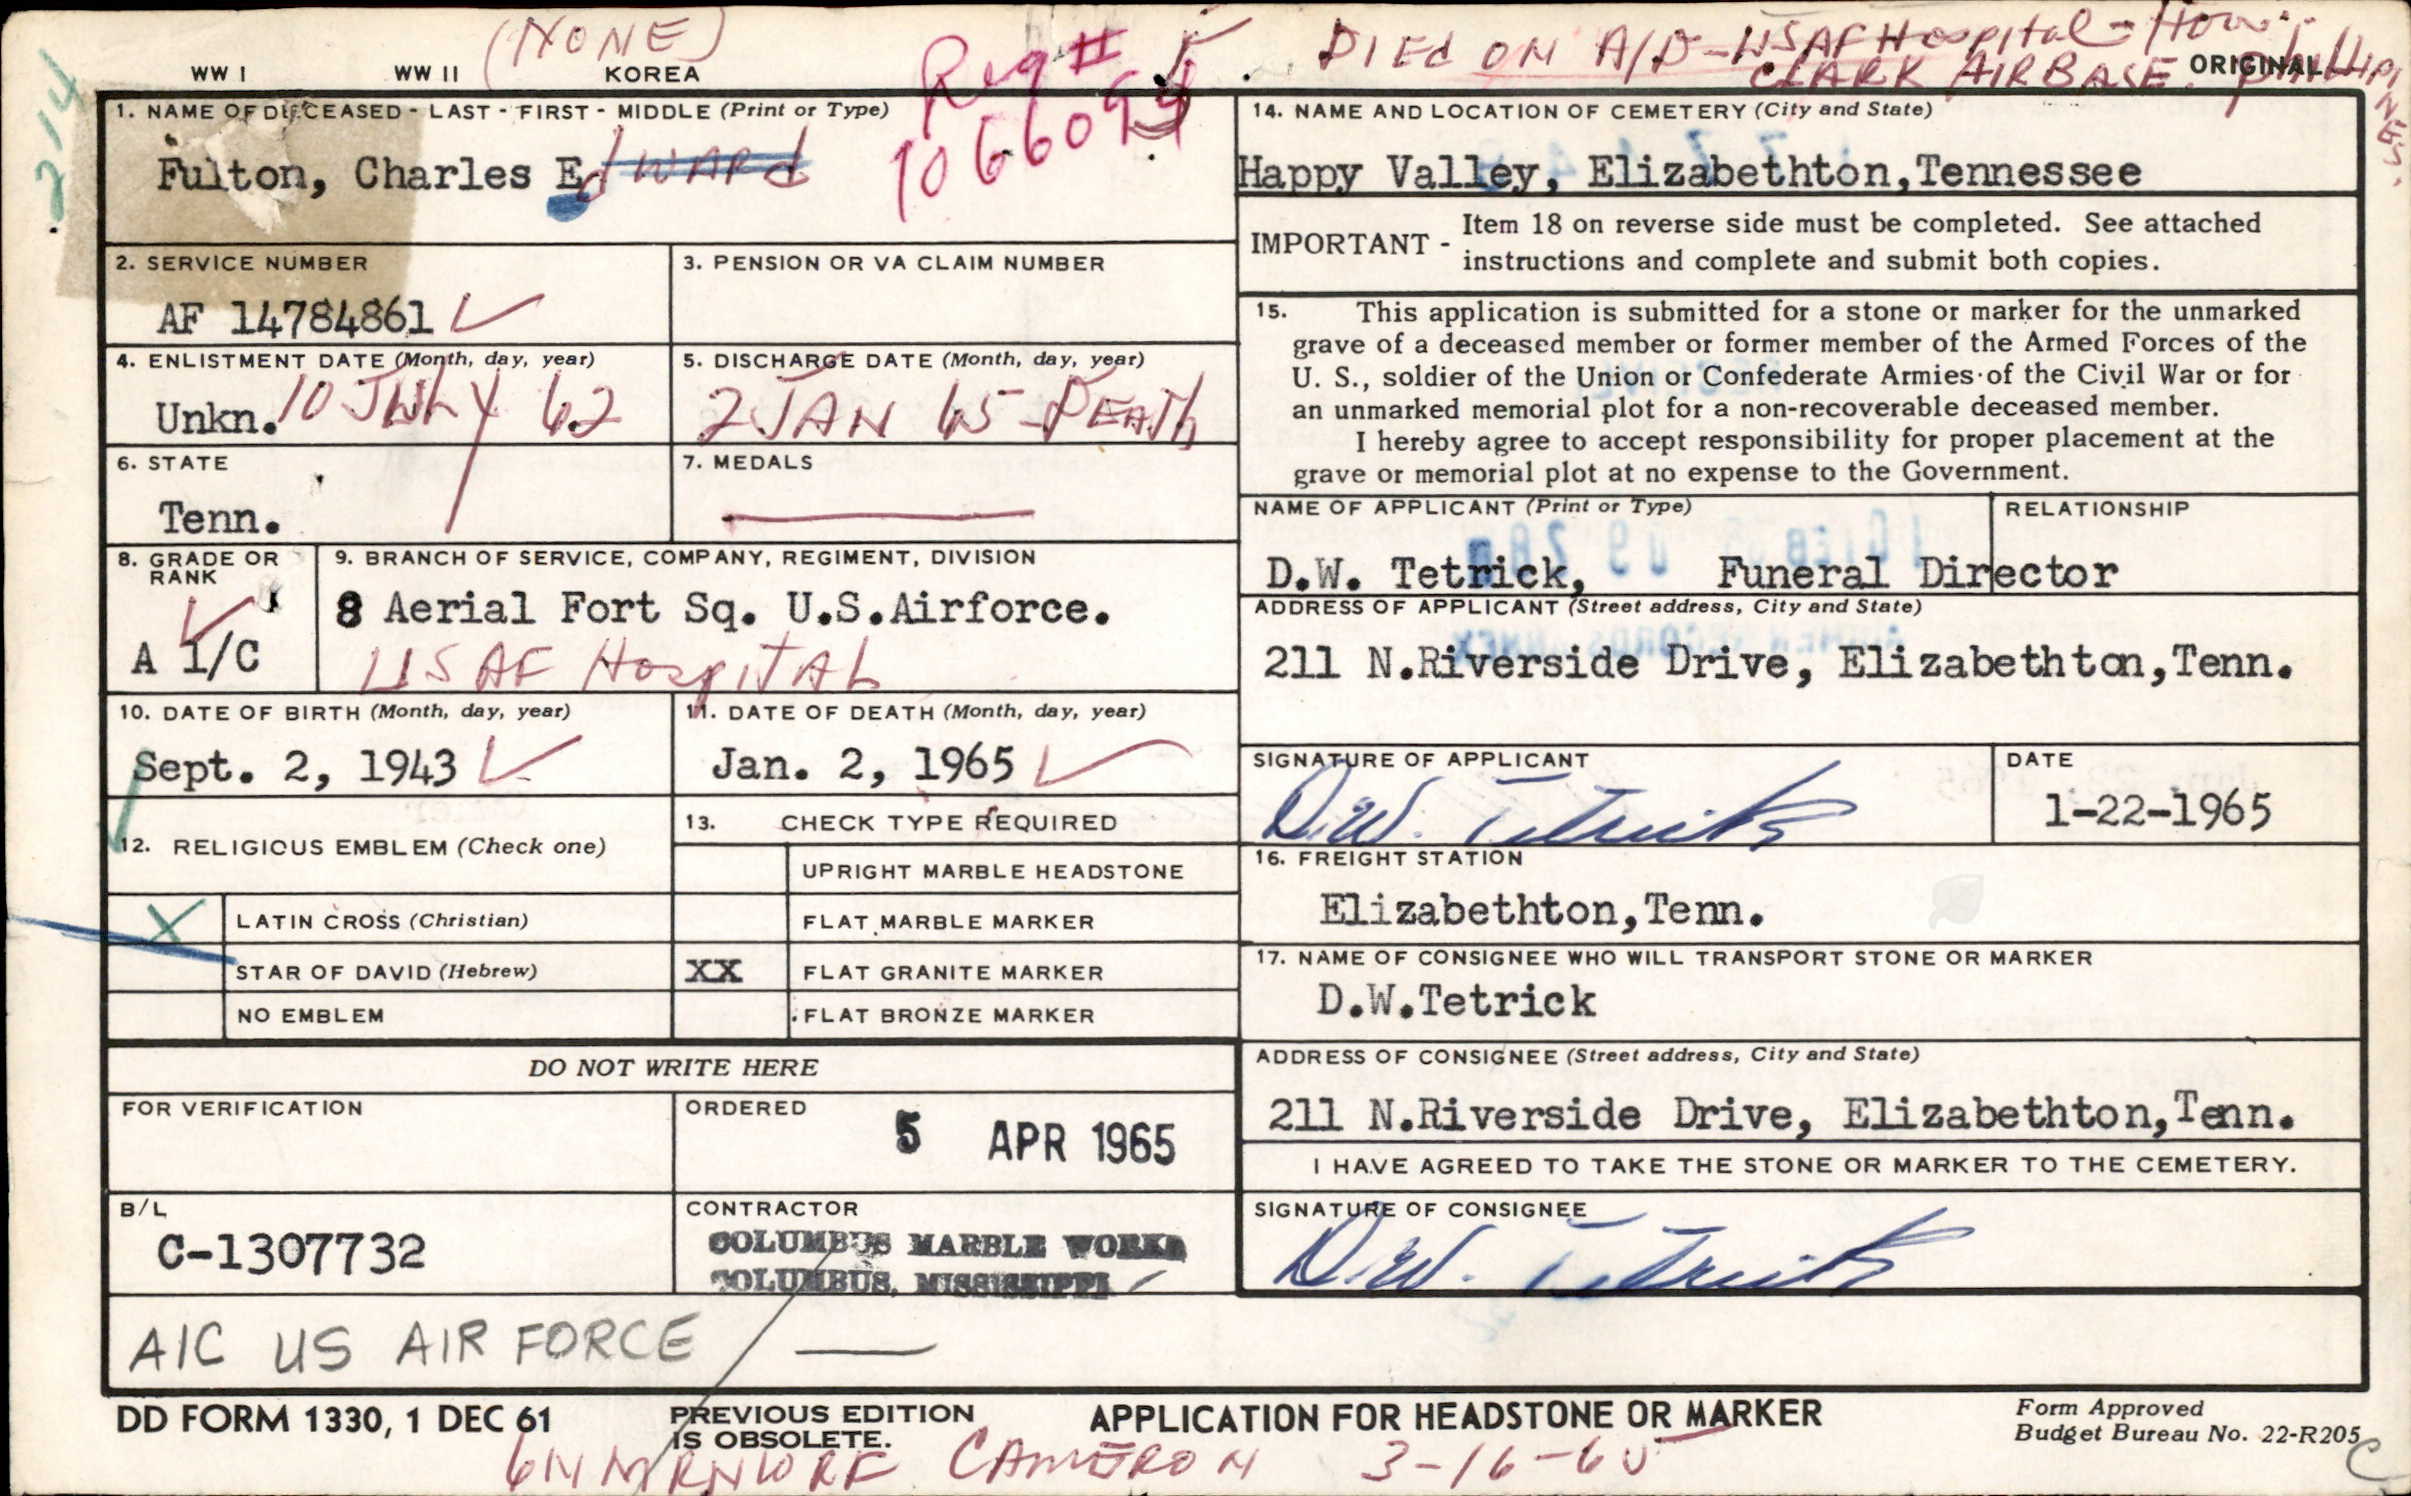 (NONE)
WW I WW II KOREA
Reg #
1066094
DIEd ON A/D - USAF Hospital -
CLARK AIR BASE. PhillipiNES.
ORIGINAL
214
1. NAME OF DECEASED - LAST - FIRST - MIDDLE (Print or Type)
Fulton, Charles EdWARd
2. SERVICE NUMBER
AF 14784861
3. PENSION OR VA CLAIM NUMBER
4. ENLISTMENT DATE (Month, day, year)
Unkn. 10 JULY 62
5. DISCHARGE DATE (Month, day, year)
2 JAN 65 - DEATh
6. STATE
Tenn.
7. MEDALS
8. GRADE OR RANK
A 1/C
9. BRANCH OF SERVICE, COMPANY, REGIMENT, DIVISION
8 Aerial Fort Sq. U.S.Airforce.
USAF HospITAL
10. DATE OF BIRTH (Month, day, year)
Sept. 2, 1943
11. DATE OF DEATH (Month, day, year)
Jan. 2, 1965
12. RELIGIOUS EMBLEM (Check one)
X LATIN CROSS (Christian)
STAR OF DAVID (Hebrew)
NO EMBLEM
13. CHECK TYPE REQUIRED
UPRIGHT MARBLE HEADSTONE
FLAT MARBLE MARKER
XX FLAT GRANITE MARKER
FLAT BRONZE MARKER
DO NOT WRITE HERE
FOR VERIFICATION
ORDERED
5 APR 1965
B/L
C-1307732
CONTRACTOR
COLUMBUS MARBLE WORKS
COLUMBUS, MISSISSIPPI
A1C US AIR FORCE
14. NAME AND LOCATION OF CEMETERY (City and State)
Happy Valley, Elizabethton,Tennessee
IMPORTANT - Item 18 on reverse side must be completed. See attached
instructions and complete and submit both copies.
15. This application is submitted for a stone or marker for the unmarked
grave of a deceased member or former member of the Armed Forces of the
U. S., soldier of the Union or Confederate Armies of the Civil War or for
an unmarked memorial plot for a non-recoverable deceased member.
I hereby agree to accept responsibility for proper placement at the
grave or memorial plot at no expense to the Government.
NAME OF APPLICANT (Print or Type) RELATIONSHIP
D.W. Tetrick, Funeral Director
ADDRESS OF APPLICANT (Street address, City and State)
211 N.Riverside Drive, Elizabethton,Tenn.
SIGNATURE OF APPLICANT
D.W. Tetrick
DATE
1-22-1965
16. FREIGHT STATION
Elizabethton,Tenn.
17. NAME OF CONSIGNEE WHO WILL TRANSPORT STONE OR MARKER
D.W.Tetrick
ADDRESS OF CONSIGNEE (Street address, City and State)
211 N.Riverside Drive, Elizabethton,Tenn.
I HAVE AGREED TO TAKE THE STONE OR MARKER TO THE CEMETERY.
SIGNATURE OF CONSIGNEE
D.W. Tetrick
DD FORM 1330, 1 DEC 61
PREVIOUS EDITION
IS OBSOLETE.
APPLICATION FOR HEADSTONE OR MARKER
Form Approved
Budget Bureau No. 22-R205
CAMERON 3-16-65
C